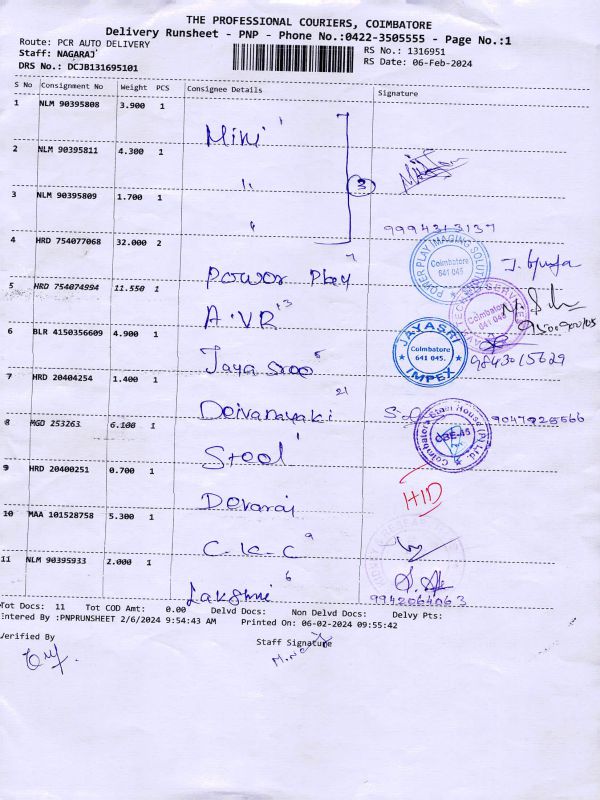 THE PROFESSIONAL COURIERS, COIMBATORE
Delivery Runsheet - PNP - Phone No.:0422-3505555 - Page No.:1
Route: PCR AUTO DELIVERY
RS No.: 1316951
Staff: NAGARAJ
RS Date: 06-Feb-2024
DRS No.: DCJB131695101
S No Consignment No Weight PCS Consignee Details Signature
1 NLM 90395808 3.900 1
Mini
2 NLM 90395811 4.300 1
"
3
3 NLM 90395809 1.700 1
"
9994313137
4 HRD 754077068 32.000 2
Power Play
POWER PLAY IMAGING SOLUTION
Coimbatore
641 045
5 HRD 754074994 11.550 1
A.VR
Coimbatore
641 045
6 BLR 4150356609 4.900 1
Jaya Sree
JAYASRI
Coimbatore
641 045.
IMPEX
9843015629
7 HRD 20404254 1.400 1
Deivanayaki 21
9047925566
8 MGD 253263 6.100 1
Steel
Coimbatore Steel House (P) Ltd.
CBE-45
9 HRD 20400251 0.700 1
Devaraj
HID
10 MAA 101528758 5.300 1
C-K-C
11 NLM 90395933 2.000 1
Lakshmi 6
9942064063
Tot Docs: 11 Tot COD Amt: 0.00 Delvd Docs: Non Delvd Docs: Delvy Pts:
Entered By :PNPRUNSHEET 2/6/2024 9:54:43 AM Printed On: 06-02-2024 09:55:42
Verified By
Staff Signature